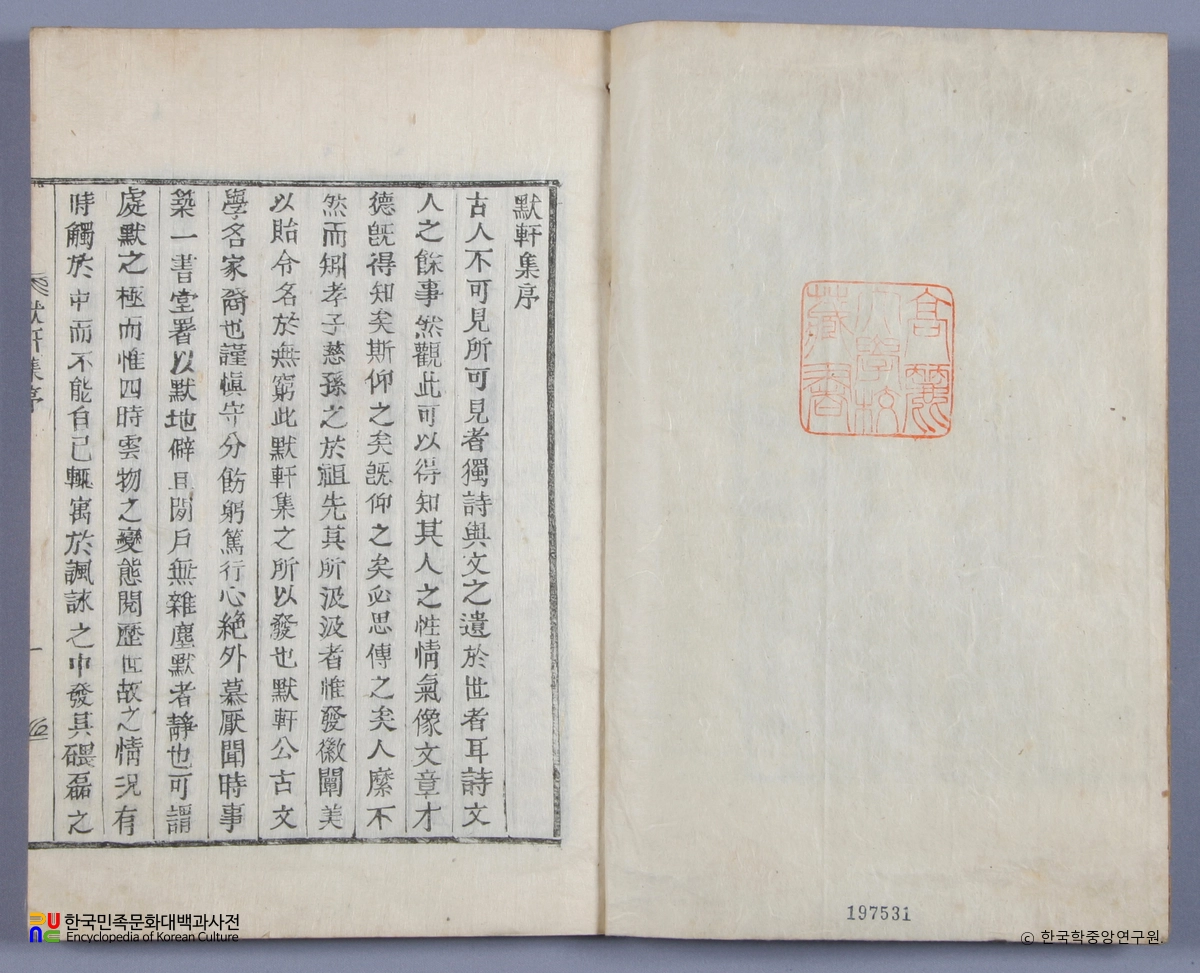 高麗
大學校
藏書
197531
默軒集序
古人不可見所可見者獨詩與文之遺於世者耳詩文
人之餘事然觀此可以得知其人之性情氣像文章才
德旣得知矣斯仰之矣旣仰之矣必思傳之矣人縻不
然而矧孝子慈孫之於祖先其所汲汲者惟發徽闡美
以貽令名於無窮此默軒集之所以發也默軒公古文
學名家裔也謹愼守分飭躬篤行心絶外慕厭聞時事
築一書堂署以默地僻且閴戶無雜塵默者靜也可謂
處默之極而惟四時雲物之變態閱歷世故之情況有
時觸於中而不能自已輒寓於諷詠之中發其磈磊之
默軒集序
一
한국민족문화대백과사전
Encyclopedia of Korean Culture
© 한국학중앙연구원